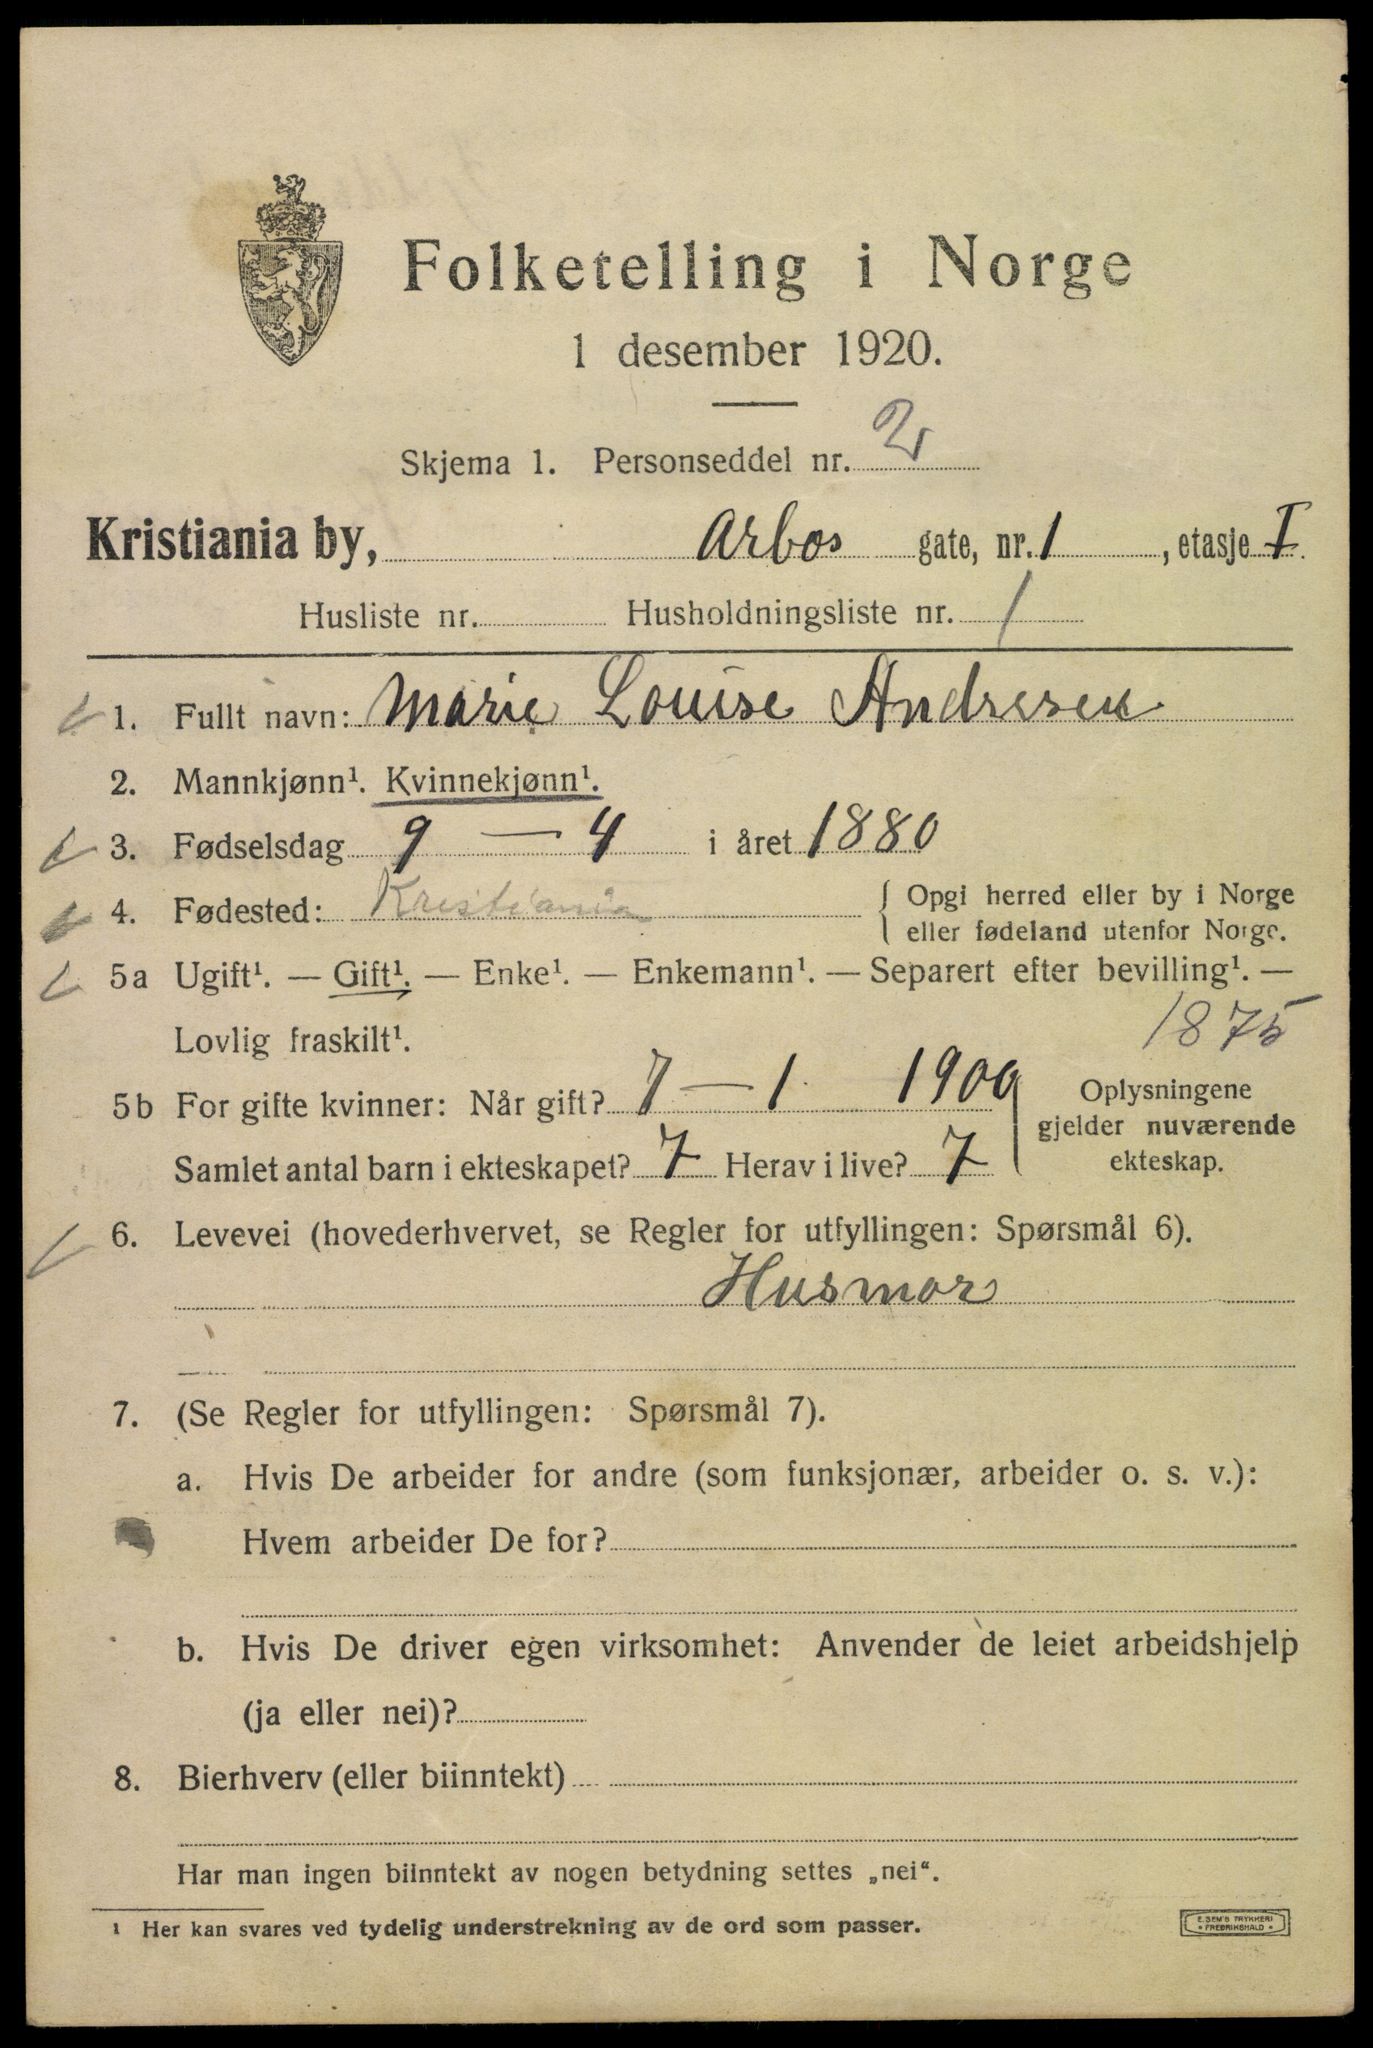 Folketelling i Norge
1 desember 1920.
Skjema 1. Personseddel nr. 2
Kristiania by, Arbos gate, nr. 1, etasje I.
Husliste nr. Husholdningsliste nr. 1
1. Fullt navn: Marie Louise Andresen
2. Mannkjønn¹. Kvinnekjønn¹.
3. Fødselsdag 9 — 4 i året 1880
4. Fødested: Kristiania { Opgi herred eller by i Norge
eller fødeland utenfor Norge.
5a Ugift¹. — Gift¹. — Enke¹. — Enkemann¹. — Separert efter bevilling¹. —
Lovlig fraskilt¹. 1875
5b For gifte kvinner: Når gift? 7 — 1 1900
Samlet antal barn i ekteskapet? 7 Herav i live? 7
Oplysningene
gjelder nuværende
ekteskap.
6. Levevei (hovederhvervet, se Regler for utfyllingen: Spørsmål 6).
Husmor
7. (Se Regler for utfyllingen: Spørsmål 7).
a. Hvis De arbeider for andre (som funksjonær, arbeider o. s. v.):
Hvem arbeider De for?
b. Hvis De driver egen virksomhet: Anvender de leiet arbeidshjelp
(ja eller nei)?
8. Bierhverv (eller biinntekt)
Har man ingen biinntekt av nogen betydning settes „nei“.
¹ Her kan svares ved tydelig understrekning av de ord som passer.
E. SEM'S TRYKKERI
• FREDRIKSHALD •